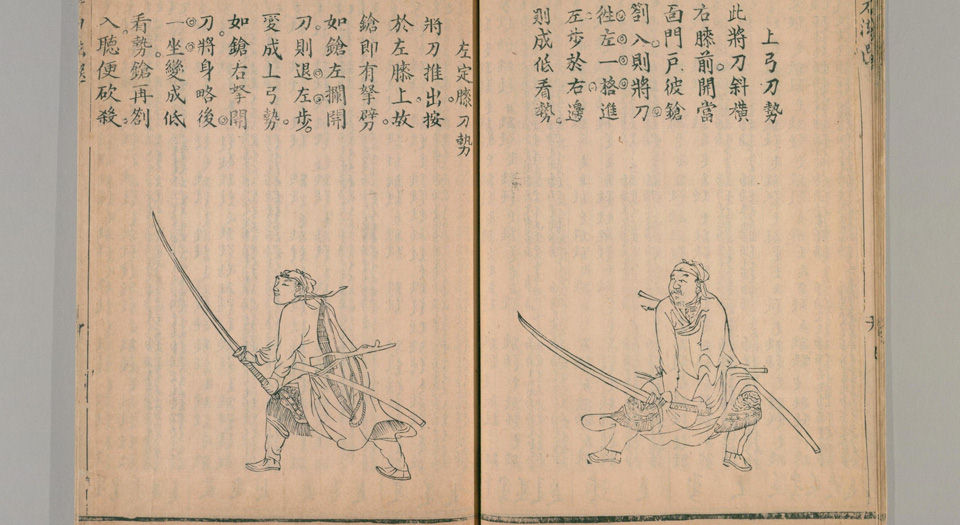 上弓刀勢
此將刀斜橫
右膝前開當
面門戶彼鎗
劄入則將刀
徃左一挌進
左步於右邊
則成低看勢
左定膝刀勢
將刀推出按
於左膝上故
鎗即有拏劈
如鎗左攔開
刀則退左步
變成上弓勢
如鎗右拏開
刀將身略後
一坐變成低
看勢鎗再劄
入聽便砍殺